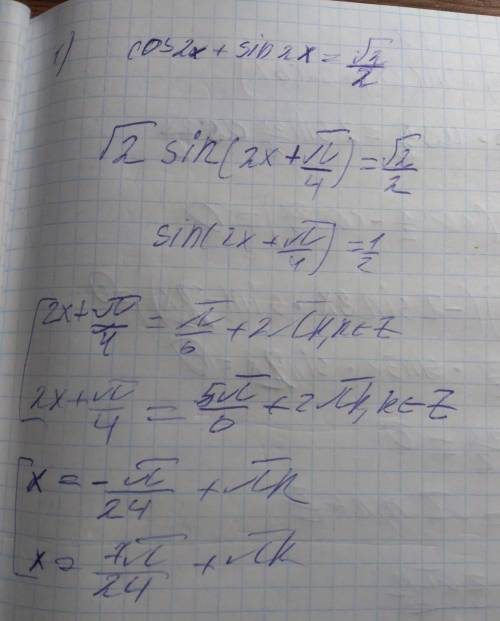 1) cos2x + sin2x = √2/2
√2 sin(2x + π/4) = √2/2
sin(2x + π/4) = 1/2
[ 2x + π/4 = π/6 + 2πk, k∈Z
2x + π/4 = 5π/6 + 2πk, k∈Z
[ x = -π/24 + πk
x = 7π/24 + πk